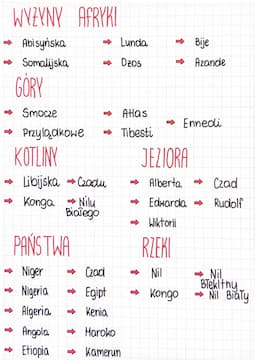 WYŻYNY AFRYKI
→ Abisyńska → Lunda → Bije
→ Somalijska → Dzos → Azande
GÓRY
→ Smocze → Atlas → Ennedi
→ Przylądkowe → Tibesti
KOTLINY
→ Libijska → Czadu
→ Konga → Nilu
Białego
JEZIORA
→ Alberta → Czad
→ Edwarda → Rudolf
→ Wiktorii
PAŃSTWA
→ Niger → Czad
→ Nigeria → Egipt
→ Algeria → Kenia
→ Angola → Maroko
→ Etiopia → Kamerun
RZEKI
→ Nil → Nil
Błękitny
→ Kongo → Nil Biały